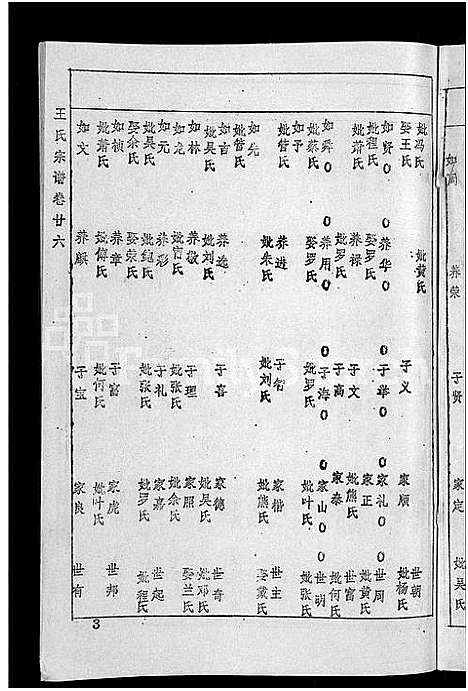 养荣 于贤 家定 妣吴氏
妣冯氏 妣黄氏 世朝
娶王氏 于义 家顺 妣杨氏
如贤 0 养华 0 于华 0 家礼 0 世周
妣程氏 娶罗氏 家正 妣黄氏
妣萧氏 养禄 于文 妣熊氏 世富
妣罗氏 于高 家泰 妣何氏
如舜 0 养用 0 于海 0 家山 0 世明
妣蔡氏 娶罗氏 妣罗氏 妣叶氏 妣张氏
如予
妣管氏 养进 于智 家楷 世主
妣朱氏 妣刘氏 妣熊氏 娶戴氏
如先
妣管氏
如吉 养逸 于喜 家德 世奇
妣吴氏 妣刘氏 妣吴氏 妣邓氏
如林 养敬 于理 家照 娶兰氏
如龙 妣官氏 妣张氏 妣余氏
如元 养彩 于礼 家嘉 世起
娶余氏 妣鲍氏 妣张氏 妣罗氏 妣程氏
妣吴氏 娶荣氏
如桢 养章 于富 家虎 世邦
妣萧氏 妣傅氏 妣何氏 妣叶氏
如文 养麒 于宝 家良 世有
王氏宗谱卷廿六
3